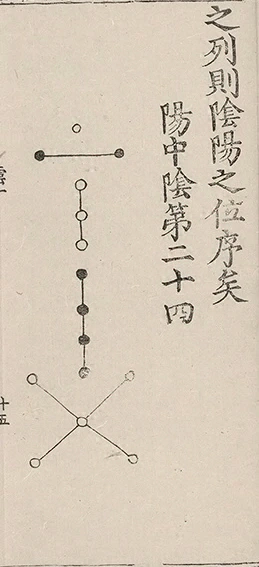 之列則陰陽之位序矣
陽中陰第二十四
十五